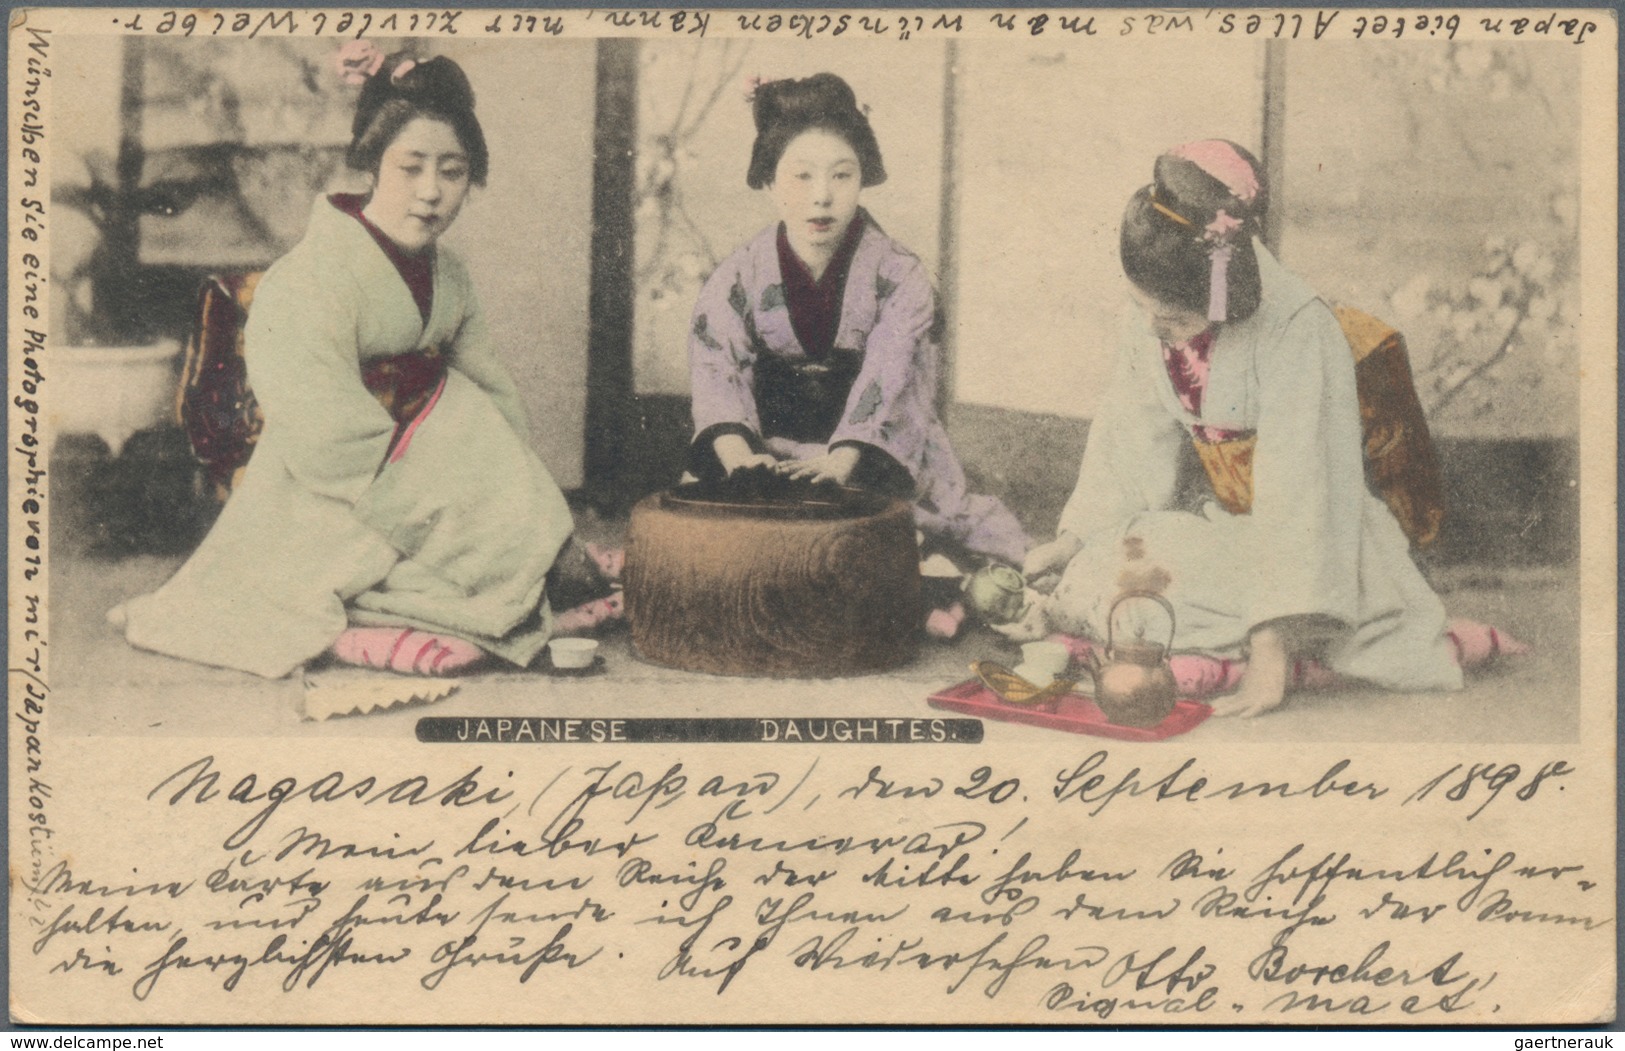 Japan bietet Alles, was man wünschen kann, nur zuviel Weiber.
Wünschen Sie eine Photographie von mir/Japankostüm/??
JAPANESE DAUGHTES.
Nagasaki, (Japan), den 20. September 1898.
Mein lieber Kamerad!
Meine Karte aus dem Reiche der Mitte haben Sie hoffentlich er-
halten, und heute sende ich Ihnen aus dem Reiche der Sonne
die herzlichsten Grüße. Auf Wiedersehen Otto Borchert,
Signal-maat.
delcampe.net
gaertnerauk